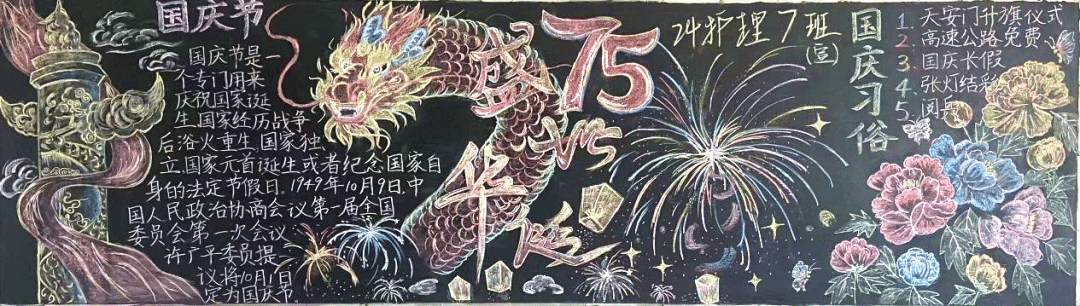 国庆节
国庆节是一
个专门用来
庆祝国家诞
生,国家经历战争
后浴火重生,国家独
立,国家元首诞生或者纪念国家自
身的法定节假日.1949年10月9日,中
国人民政治协商会议第一届全国
委员会第一次会议
许广平委员提
议将10月1日
定为国庆节.
75
盛世
华诞
24护理7班
(宣)
国庆习俗
1. 天安门升旗仪式
2. 高速公路免费
3. 国庆长假
4. 张灯结彩
5. 阅兵